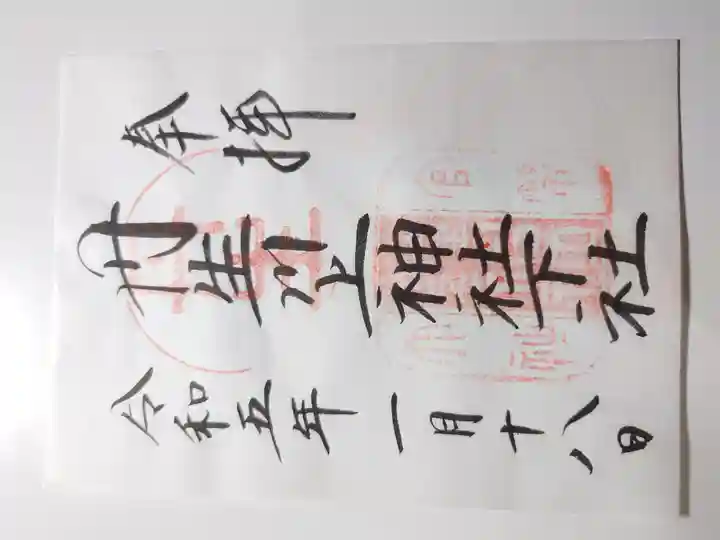 奉拝
丹生川上神社下社
令和五年一月十八日